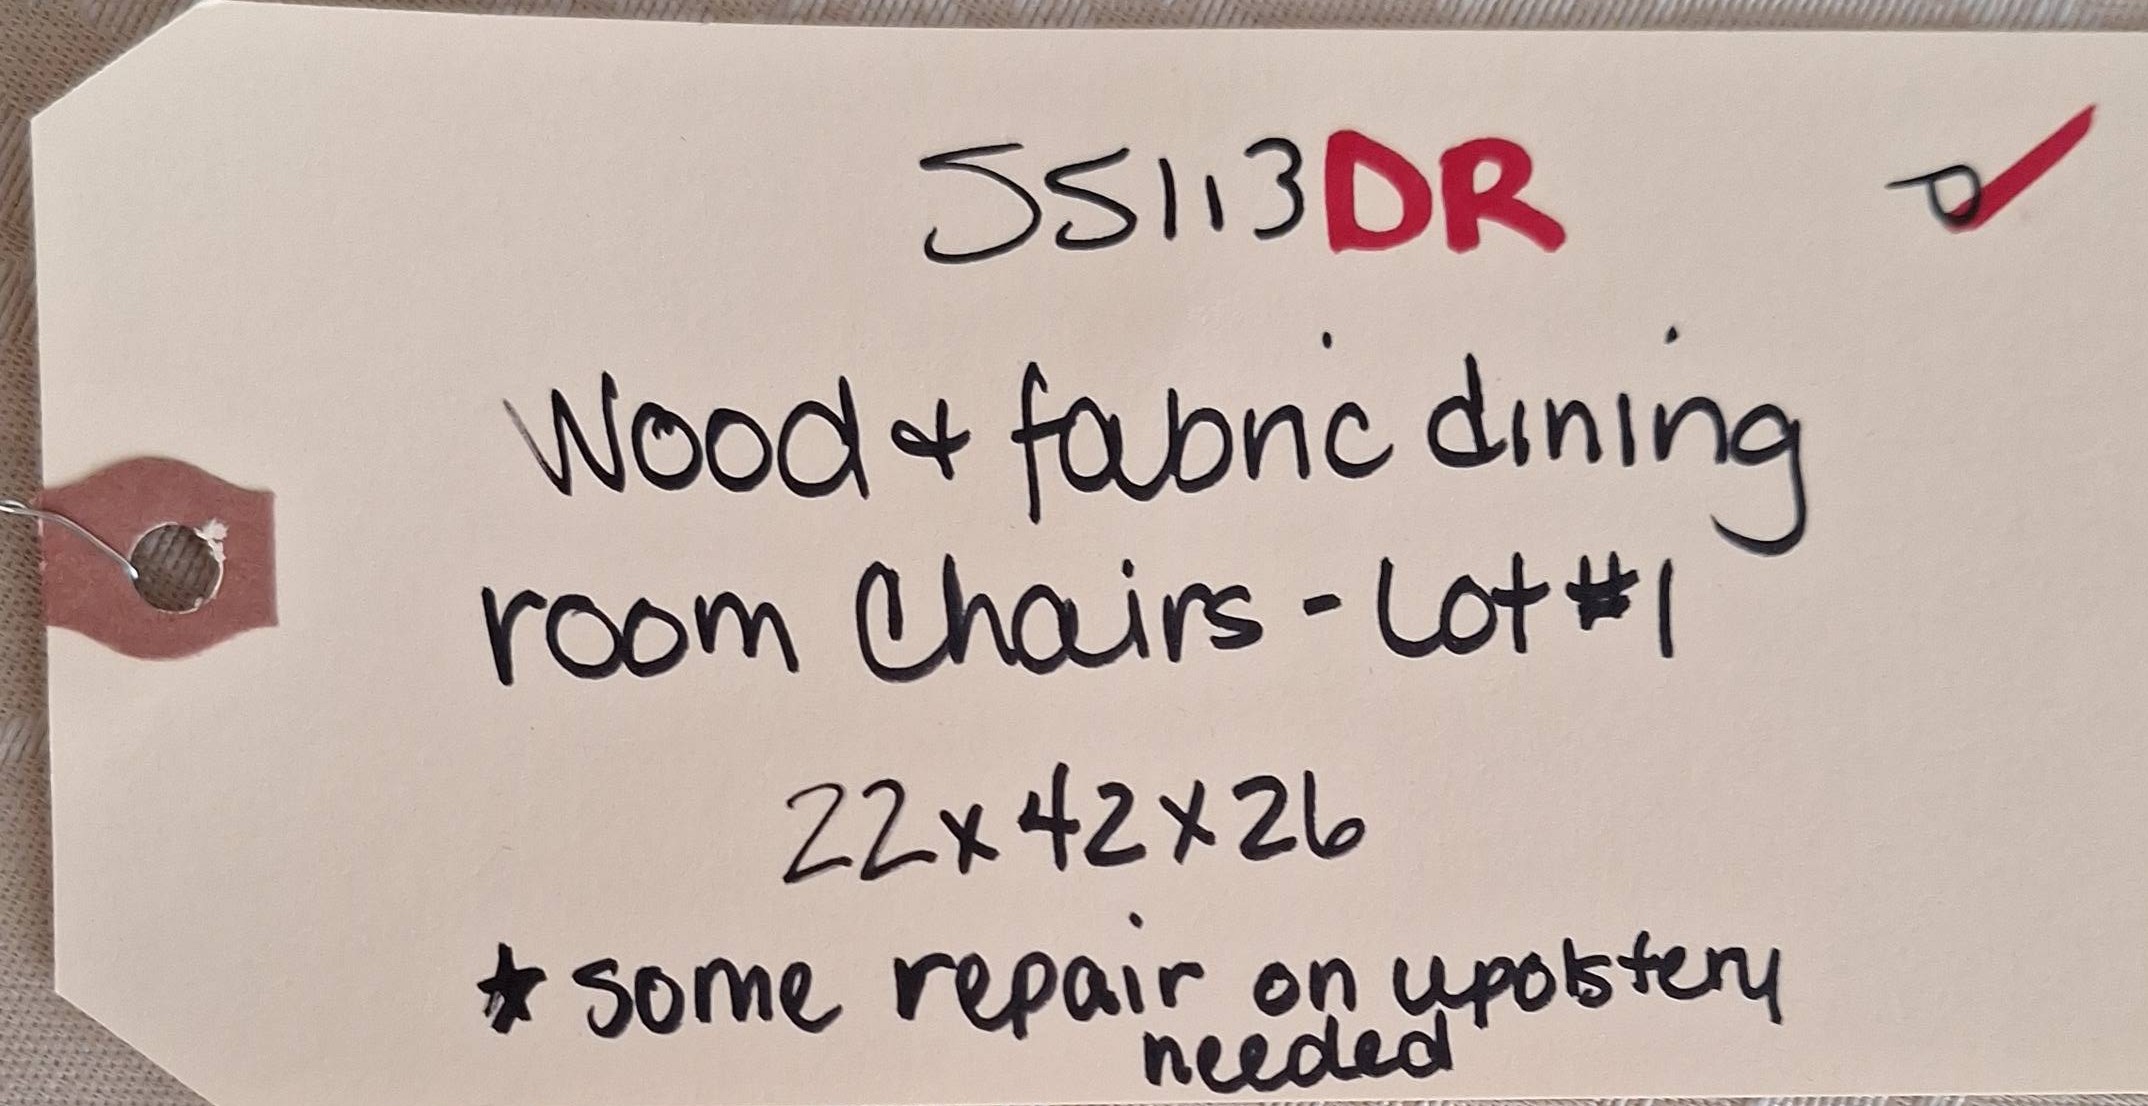 JS113DR
Wood & fabric dining
room Chairs - Lot #1
22x42x26
* some repair on upolstery
needed